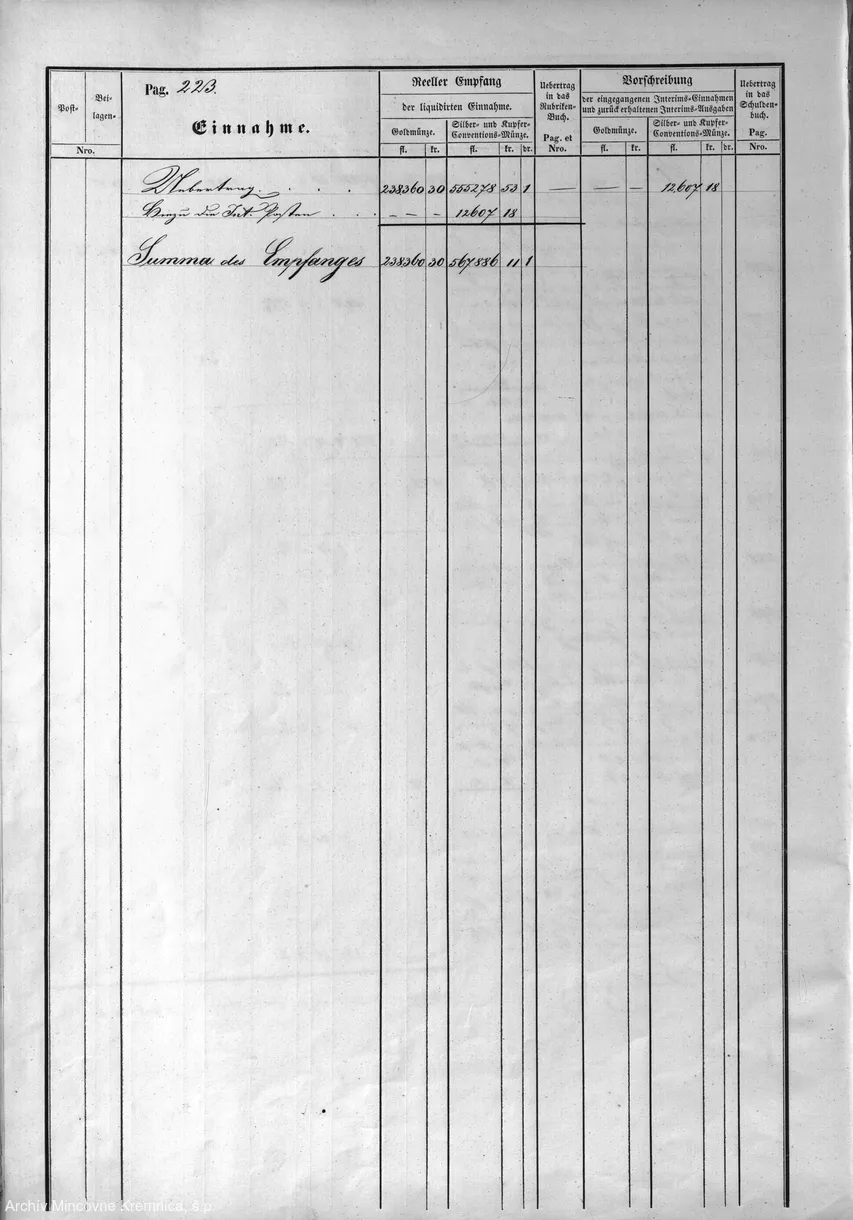 Pag. 223.
Einnahme.
Post-
Bei-
lagen-
Nro.
Reeller Empfang
der liquidirten Einnahme.
Goldmünze.
Silber- und Kupfer-
Conventions-Münze.
fl. kr. fl. kr. dr.
Uebertrag
in das
Rubriken-
Buch.
Pag. et
Nro.
Vorschreibung
der eingegangenen Interims-Einnahmen
und zurück erhaltenen Interims-Ausgaben
Goldmünze.
Silber- und Kupfer-
Conventions-Münze.
fl. kr. fl. kr. dr.
Uebertrag
in das
Schulden-
buch.
Pag.
Nro.
Uebertrag . . . 238360 30 555278 53 1 — — — 12607 18
Hiezu die Int. Posten . . . – – – 12607 18
Summa des Empfanges 238360 30 567886 11 1
Archív Mincovne Kremnica, š.p.